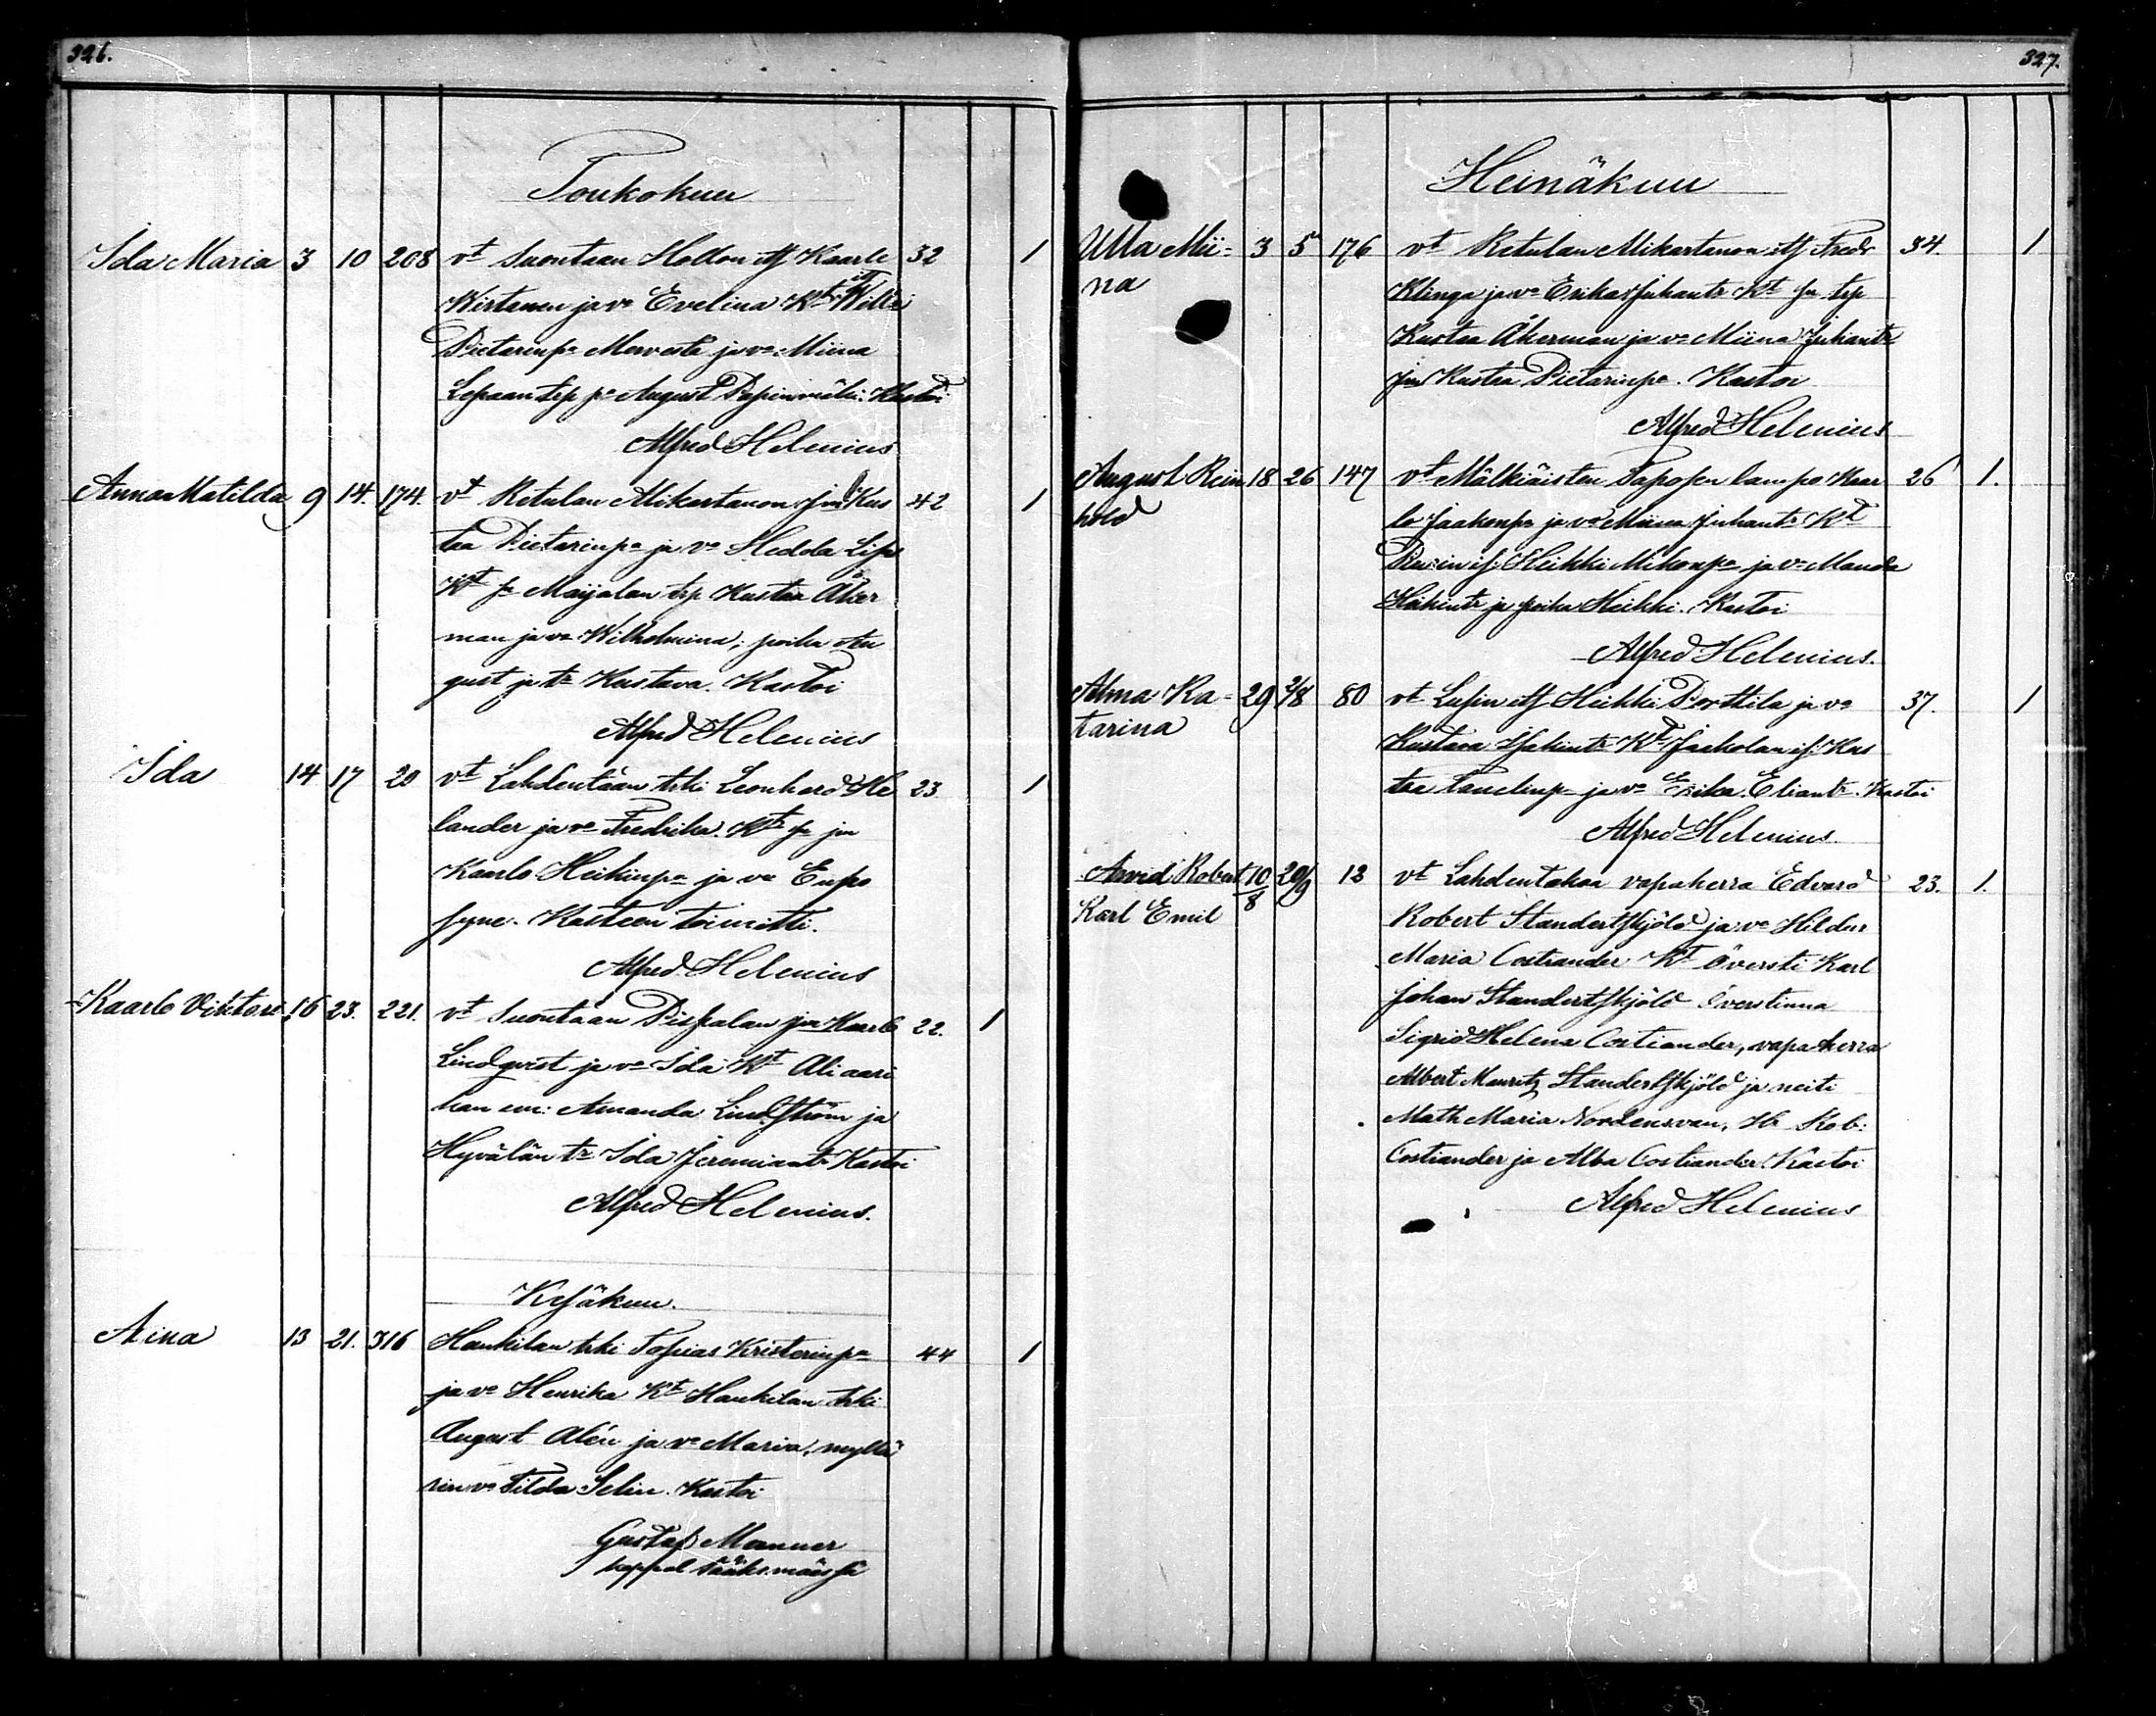 326.
Toukokuu
Ida Maria 3 10 208 vt Suontaan Hollon itf Kaarle 32 1
Wirtanen ja vo Evelina Kt: itf Wille
Pietarinpa Mervesta ja vo Miina
Lepaan trp pa August Papinmäki. Kastoi
Alfred Helenius
Anna Matilda 9 14. 174. vt Retulan Alikartanon jm Kus 42 1
taa Pietarinpa ja vo Hedda Lisa
Kt Maijalan trp Kustaa Åker
man ja vo Wilhelmina, poika Au
gust ja tr Kustava. Kastoi
Alfred Helenius
Ida 14 17 20 vt Lahdentaan trki Leonhard He 23 1
lander ja vo Fredrika. Kt jm
Kaarlo Heikinpa ja vo Eufro
syne. Kasteen toimitti.
Alfred Helenius
Kaarlo Viktori 16 23. 221. vt Suontaan Pispalan jm Kaarlo 22. 1
Lindqvist ja vo Ida Kt Aliaari
han em: Amanda Lindström ja
Hyvälän tr Ida Jeremiantr Kastoi
Alfred Helenius.
Kesäkuu.
Aina 13 21. 316 Haukilan trki Topias Kristerinpa 44 1
ja vo Henrika Kt Haukilan trki
August Alén ja vo Maria, myllä
rin vo Tilda Selin. Kastoi
Gustaf Manner
kappal Sääksmäessä
327.
Heinäkuu
Ulla Mii- 3 5 176 vt Retulan Alikartanon itf Fredr 34. 1
na Klinga ja vo Erika Juhantr Kt trp
Kustaa Åkerman ja vo Miina Juhantr
jm Kustaa Pietarinpa. Kastoi
Alfred Helenius
August Rein 18 26 147 vt Mälkiäisten lampo Kaar 26 1.
hold lo Jaakonpa ja vo Miina Juhantr Kt
Heikki Mikonpa ja vo Manda
Heikintr ja poika Heikki. Kastoi
Alfred Helenius.
Alma Ka- 29 2/8 80 vt Lusin itf Heikki Porttila ja vo 37. 1
tarina Kustava Isakintr Kt Jaakolan if: Kus
taa Taavelinpa ja vo Erika Eliantr. Kastoi
Alfred Helenius.
Arvid Robert 10/8 20/9 13 vt Lahdentakaa vapaherra Edvard 23. 1.
Karl Emil Robert Standertskjöld ja vo Hildur
Maria Costiander Kt Översti Karl
Johan Standertskjöld Överstinna
Sigrid Helena Costiander, vapaherra
Albert Mauritz Standertskjöld ja neiti
Math Maria Nordensvan, Hr Rob:
Costiander ja Alba Costiander. Kastoi
Alfred Helenius